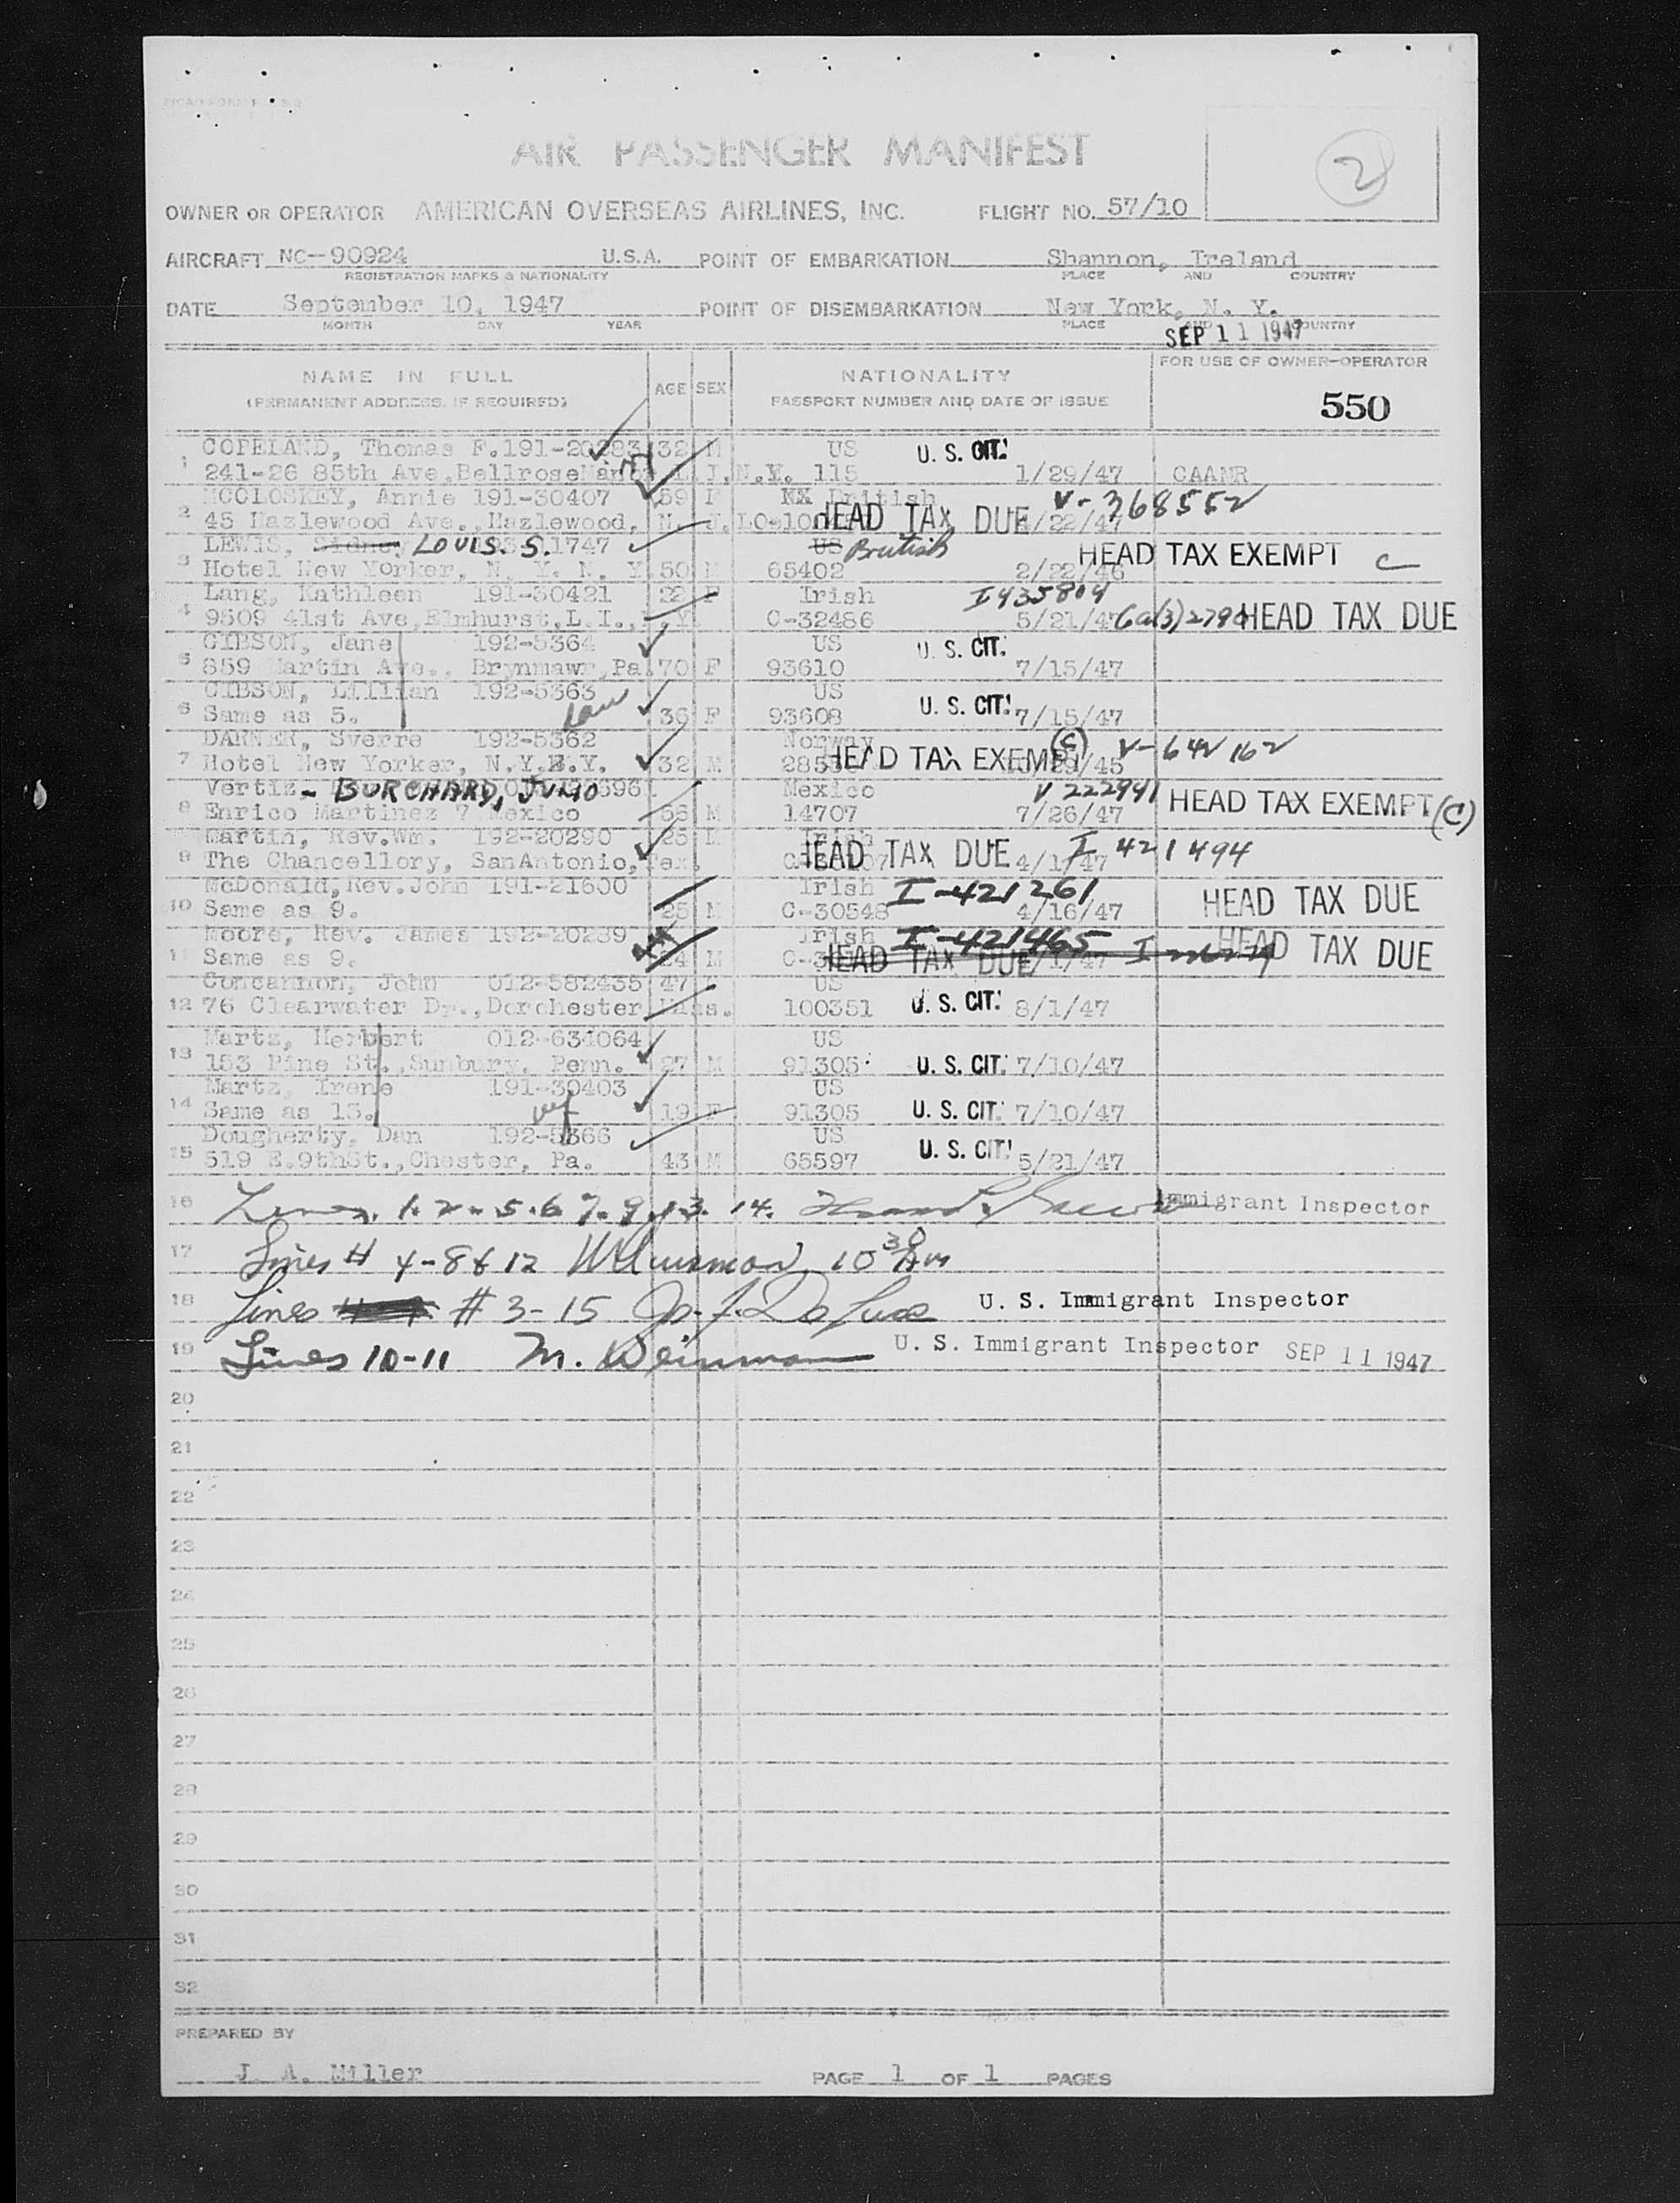 AIR PASSENGER MANIFEST
2
OWNER OR OPERATOR AMERICAN OVERSEAS AIRLINES, INC. FLIGHT NO. 57/10
AIRCRAFT NC--90924 U.S.A. POINT OF EMBARKATION Shannon, Ireland
REGISTRATION MARKS & NATIONALITY PLACE AND COUNTRY
DATE September 10, 1947 POINT OF DISEMBARKATION New York, N. Y.
MONTH DAY YEAR PLACE AND COUNTRY
SEP 11 1947
NAME IN FULL AGE SEX NATIONALITY FOR USE OF OWNER-OPERATOR
(PERMANENT ADDRESS, IF REQUIRED) PASSPORT NUMBER AND DATE OF ISSUE 550
COPELAND, Thomas F. 191-20283 32 M US U. S. CIT.
1 241-26 85th Ave. Bellrose L. I. N.Y. 115 1/29/47 CAAMR
MCCLOSKEY, Annie 191-30407 59 F British V-368552
2 45 Hazlewood Ave., Hazlewood, N. J. HEAD TAX DUE /22/47
LEWIS, Sidney LOUIS. S. 1747 US British HEAD TAX EXEMPT C
3 Hotel New Yorker, N. Y. N. Y. 50 M 65402 2/22/46
Lang, Kathleen 191-30421 22 F Irish I435804
4 9509 41st Ave, Elmhurst, L.I., N.Y. C-32486 5/21/47 6a(3) HEAD TAX DUE
GIBSON, Jane 192-5364 US U. S. CIT.
5 859 Martin Ave., Brynmawr, Pa. 70 F 93610 7/15/47
GIBSON, Lillian 192-5363 US
6 Same as 5. 36 F 93608 U. S. CIT. 7/15/47
DARNER, Sverre 192-5362 Norway (C) V-642162
7 Hotel New Yorker, N.Y.N.Y. 32 M HEAD TAX EXEMPT /45
Vertiz - BURCHARD, JULIO 696 Mexico V 222941 HEAD TAX EXEMPT (C)
8 Enrico Martinez 7 Mexico 56 M 14707 7/26/47
Martin, Rev.Wm. 192-20290 25 M Irish I 421494
9 The Chancellory, SanAntonio, Tex. HEAD TAX DUE 4/1/47
McDonald, Rev. John 191-21600 Irish I-421261 HEAD TAX DUE
10 Same as 9. 25 M C-30548 4/16/47
Moore, Rev. James 192-20289 Irish I-421465 HEAD TAX DUE
11 Same as 9. 24 M HEAD TAX DUE /1/47
Concannon, John 012-582435 47 US
12 76 Clearwater Dr., Dorchester Mass. 100351 U. S. CIT. 8/1/47
Martz, Herbert 012-634064 US
13 153 Pine St., Sunbury, Penn. 27 M 91305 U. S. CIT. 7/10/47
Martz, Irene 191-30403 US
14 Same as 13. 19 F 91305 U. S. CIT. 7/10/47
Dougherty, Dan 192-5366 US U. S. CIT.
15 519 E.9thSt., Chester, Pa. 43 M 65597 5/21/47
16 Lines. 1. 2. 5. 6 7. 9. 13. 14. Immigrant Inspector
17 Lines # 4-8 & 12 10 30 Am
18 Lines # 3-15 U. S. Immigrant Inspector
19 Lines 10-11 M. Weinman U. S. Immigrant Inspector SEP 11 1947
20
21
22
23
24
25
26
27
28
29
30
31
32
PREPARED BY
J. A. Miller PAGE 1 OF 1 PAGES